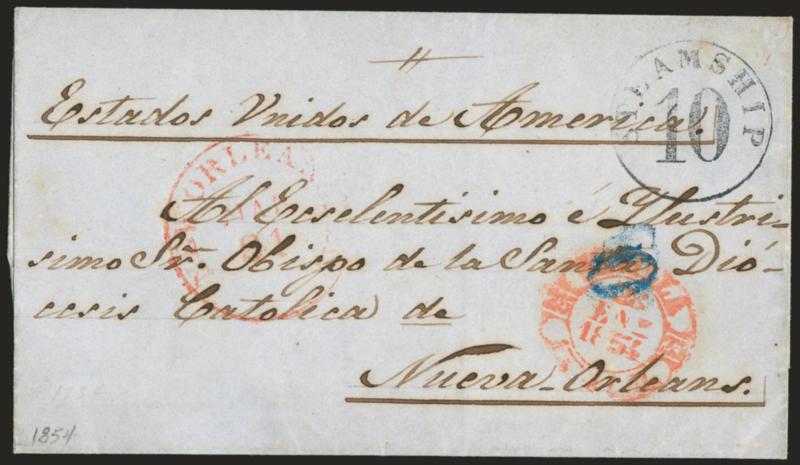 Estados Vnidos de America.
STEAMSHIP
10
ORLEANS
Al Ecselentisimo é Ylustri-
simo Sr. Obispo de la Santa Dió-
cesis Catolica de
Nueva-Orleans.
1854